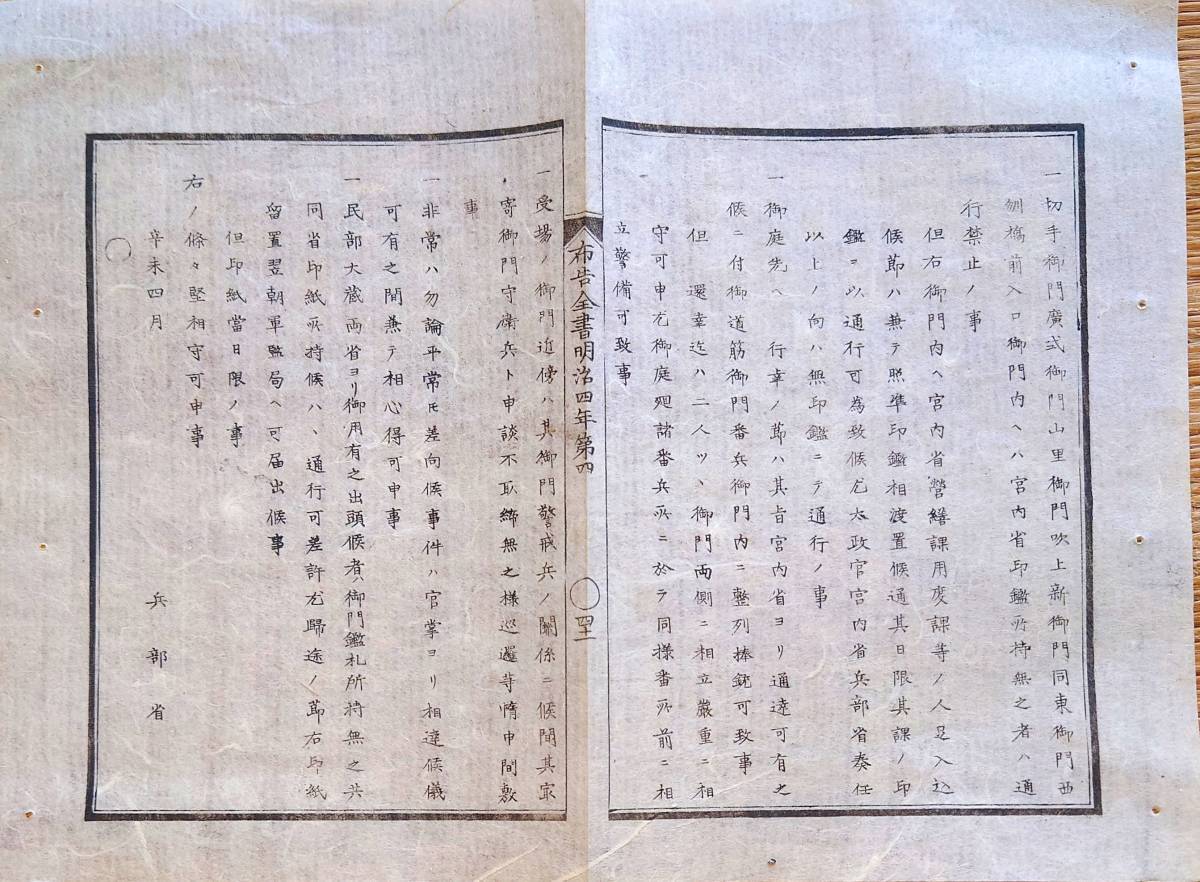 一切手御門廣式御門山里御門吹上新御門同東御門西
刎橋前入口御門内ヘハ宮内省印鑑所持無之者ハ通
行禁止ノ事
但右御門内ヘ宮内省營繕課用度課等ノ人足入込
候節ハ兼テ照準印鑑相渡置候通其日限其課ノ印
鑑ヲ以通行可為致候尤太政官宮内省兵部省奏任
以上ノ向ハ無印鑑ニテ通行ノ事
一御庭先ヘ 行幸ノ節ハ其旨宮内省ヨリ通達可有之
候ニ付御道筋御門番兵御門内ニ整列捧銃可致事
但 還幸迄ハ二人ツヽ御門両側ニ相立嚴重ニ相
守可申尤御庭廻諸番兵所ニ於ラ同様番所前ニ相
立警備可致事
布告全書明治四年第四
四十一
一受場ノ御門近傍ハ其御門警戒兵ノ關係ニ候間其家
寄御門守衛兵ト申談不取締無之様巡邏等惰申間敷
事
一非常ハ勿論平常氏差向候事件ハ官掌ヨリ相達候儀
可有之間兼テ相心得可申事
一民部大蔵両省ヨリ御用有之出頭候者ハ御門鑑札所持無之共
同省印紙所持候ハヽ通行可差許尤歸途ノ節右印紙
留置翌朝軍監局ヘ可届出候事
但印紙當日限ノ事
右ノ條々堅相守可申事
辛未四月 兵部省